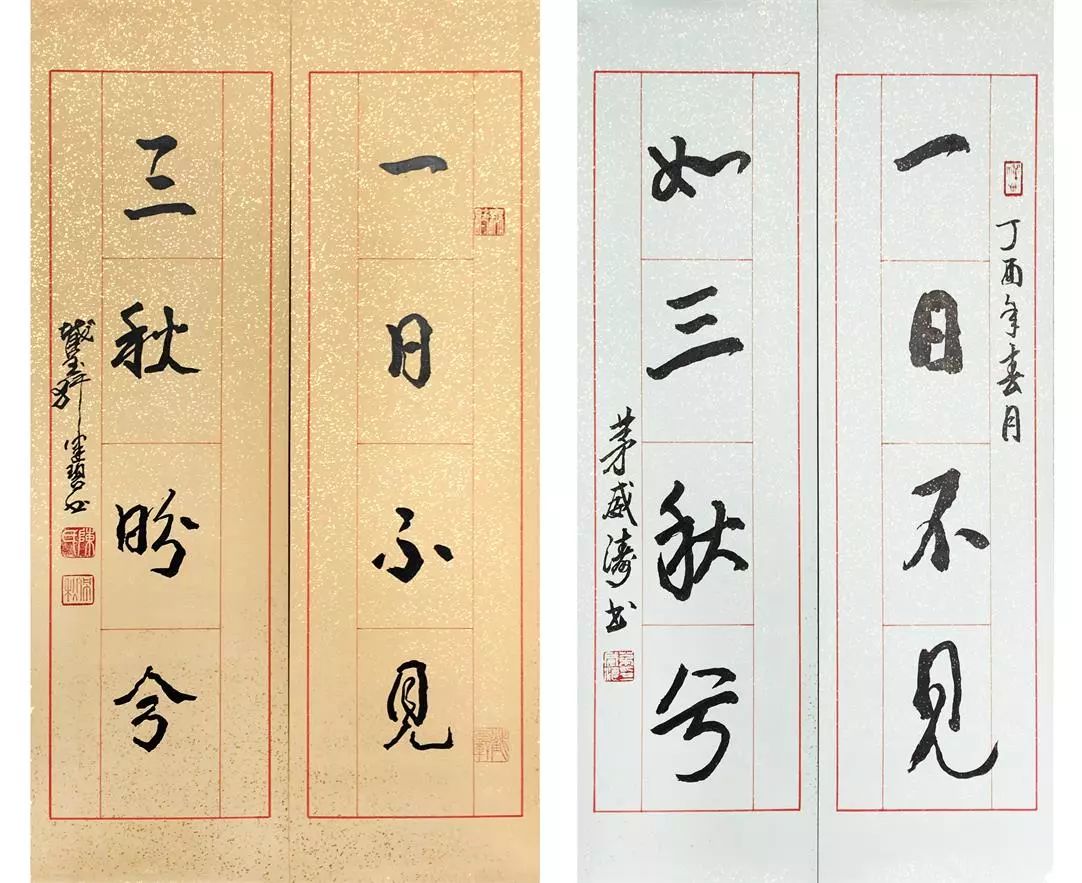 一日不見
三秋盼兮
丁酉年春月
一日不見
如三秋兮
茅威涛书